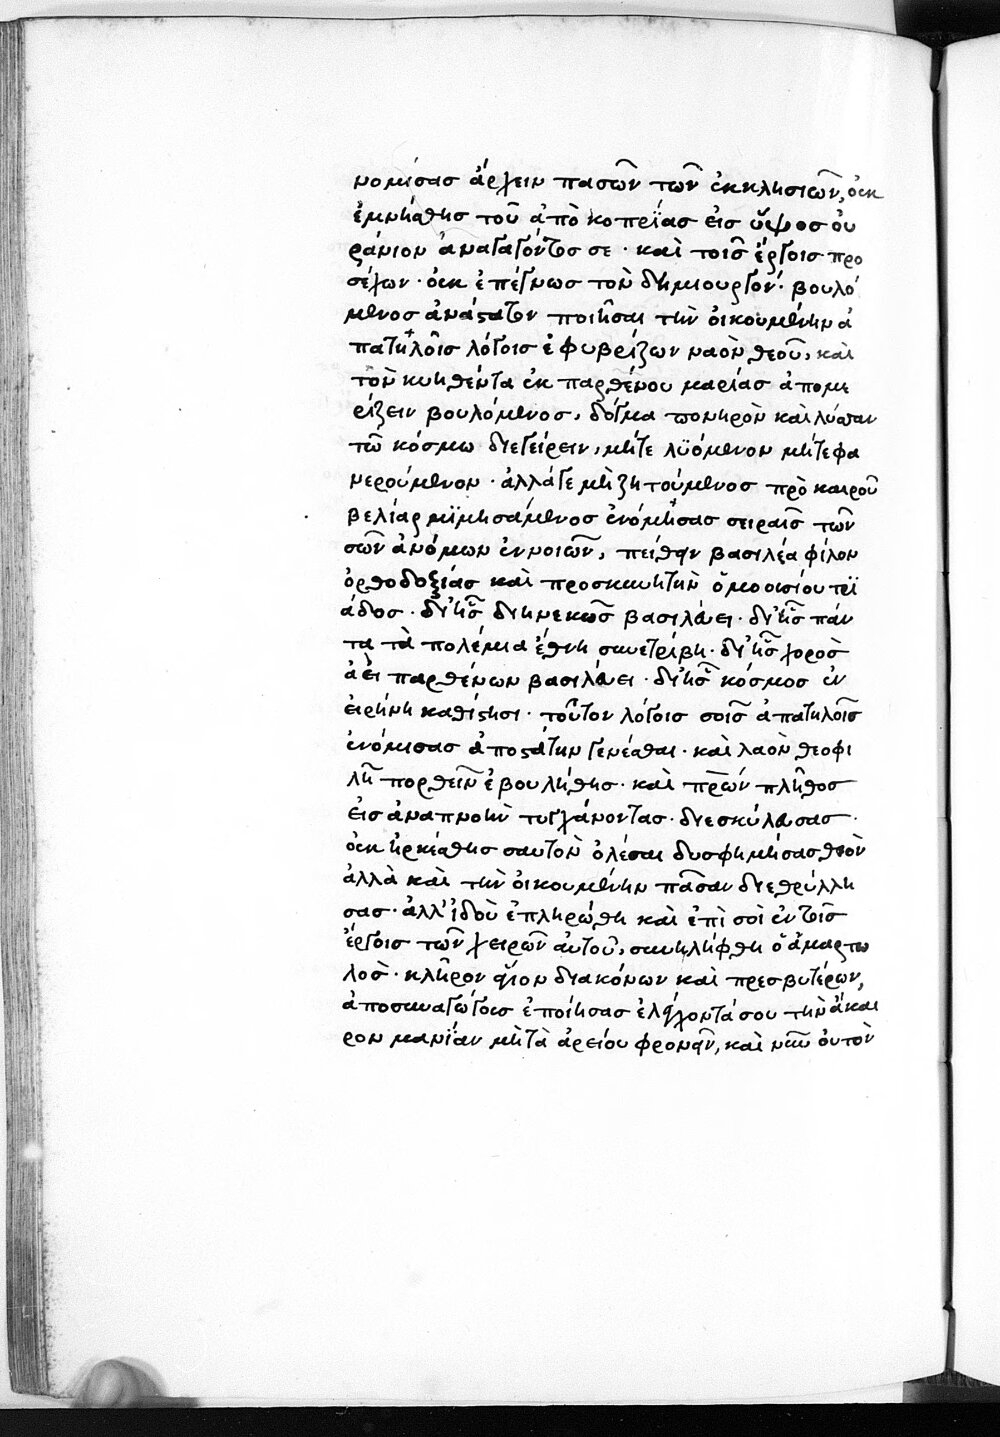 νομίσας ἄρχειν πασῶν τῶν ἐκκλησιῶν, ὀυκ
ἐμνήσθης τοῦ ἀπὸ κοπρίας εἰς ὕψος ὀυ
ράνιον ἀναγαγόντος σε · καὶ τοῖς ἔργοις προ
σέχων · ὀυκ ἐπέγνως τὸν δημιουργόν · βουλό
μενος ἀνάστατον ποιῆσαι τὴν ὀικουμένην ἀ
πατηλοῖς λόγοις ἐφυβρίζων ναὸν θεοῦ, καὶ
τὸν κυηθέντα ἐκ παρθένου μαρίας ἀπομε
ρίζειν βουλόμενος, δόγμα πονηρὸν καὶ λύπαν
τῶ κόσμω διεγείρειν, μήτε λϋόμενον μήτε φα
νερούμενον · ἀλλάγε μὴ ζητούμενος πρὸ καιροῦ
βελίαρ μϊμησάμενος ἐνόμησας σειραῖς τῶν
σῶν ἀνόμων ἐννοιῶν, πείθειν βασιλέα φίλον
ὀρθοδοξίας καὶ προσκυνητὴν ὁμοουσίου τρϊ
άδος · δι' ἧς διηνεκῶς βασιλεύει · δι' ἧς πάν
τα τὰ πολέμια ἔθνη συνετρίβη · δι' ἧς χορὸς
ἀεὶ παρθένων βασιλεύει · δι' ἧς κόσμος ἐν
εἰρήνη καθίστησι · τοῦτον λόγοις σοῖς ἀπατηλοῖς
ἐνόμισας ἀποστάτην γενέσθαι · καὶ λαὸν θεοφι
λῆ πορθεῖν ἐβουλήθης · καὶ πρων πλῆθος
εἰς ἀναπνοὴν τυγχάνοντας · διεσκύλευσας ·
ὀυκ ἠρκέσθης σαυτὸν ὀλέσαι δυσφημήσας θεὸν
ἀλλὰ καὶ τὴν ὀικουμένην πᾶσαν διεθρύλλη
σας · ἀλλ' ἰδοὺ ἐπληρώθη καὶ ἐπὶ σοὶ ἐν τοῖς
ἔργοις τῶν χειρῶν ἀυτοῦ, συνηλήφθη ὁ ἁμαρτω
λὸς · κλῆρον θεῖον διακόνων καὶ πρεσβυτέρων,
ἀποσυναγώγους ἐποίησας ἐλέγχοντάσου τὴν ἄκαι
ρον μανίαν μὴ τὰ ἀρείου φρονεῖν, καὶ νῦν ὀυ τὸν